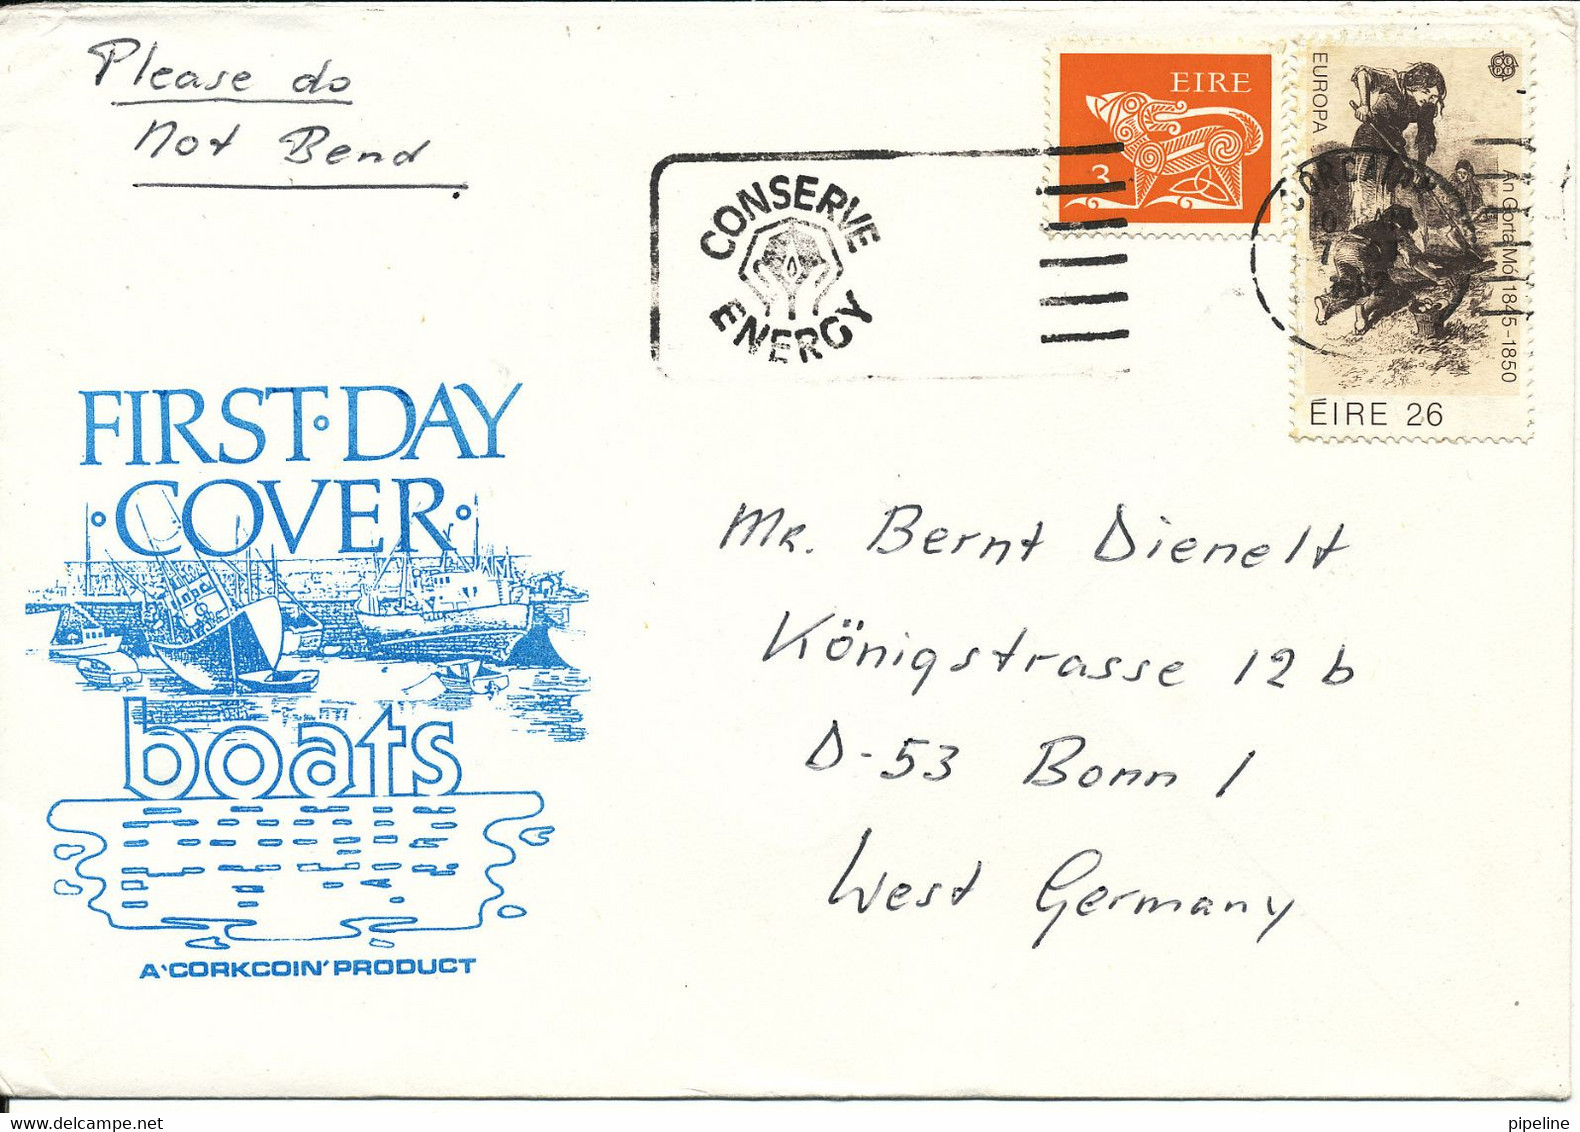 Please do
Not Bend
EIRE
3
EUROPA
An Gorta Mór 1845-1850
ÉIRE 26
CONSERVE
ENERGY
FIRST·DAY
·COVER·
boats
A'CORKCOIN' PRODUCT
Mr. Bernt Dienelt
Königstrasse 12 b
D-53 Bonn 1
West Germany
www.delcampe.net
pipeline